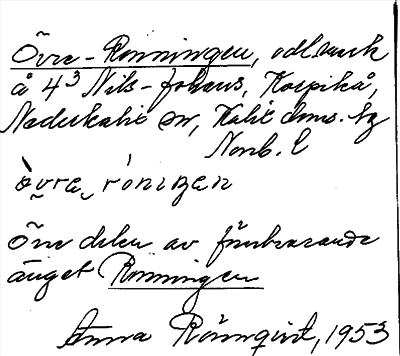 Övre-Rönningen, odl.mark
å 4³ Nils-Johans, Korpikå,
Nederkalix sn, Kalix doms. tg
Norrb. l
òvrⱥ rónıŋen
Övre delen av förutvarande
änget Rönningen
Anna Rönnqvist, 1953